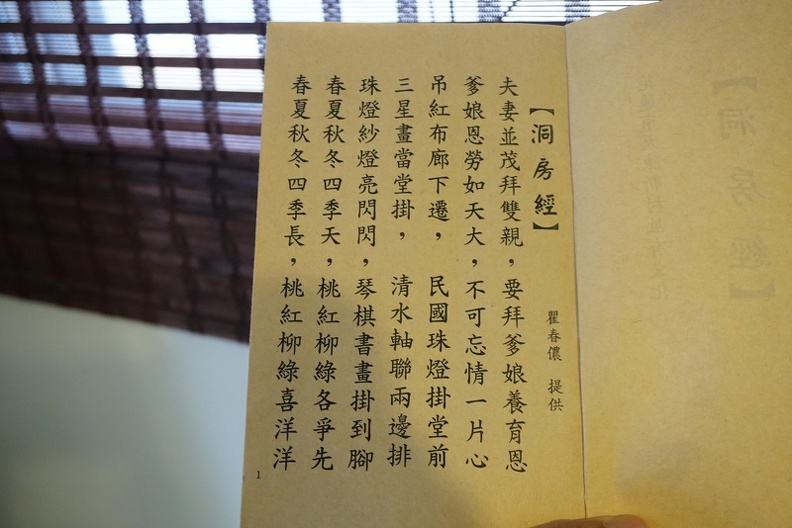 【洞房經】
瞿春儂 提供
夫妻並茂拜雙親，要拜爹娘養育恩
爹娘恩勞如天大，不可忘情一片心
吊紅布廊下遷，民國珠燈掛堂前
三星畫當堂掛，清水軸聯兩邊排
珠燈紗燈亮閃閃，琴棋書畫掛到腳
春夏秋冬四季天，桃紅柳綠各爭先
春夏秋冬四季長，桃紅柳綠喜洋洋
1